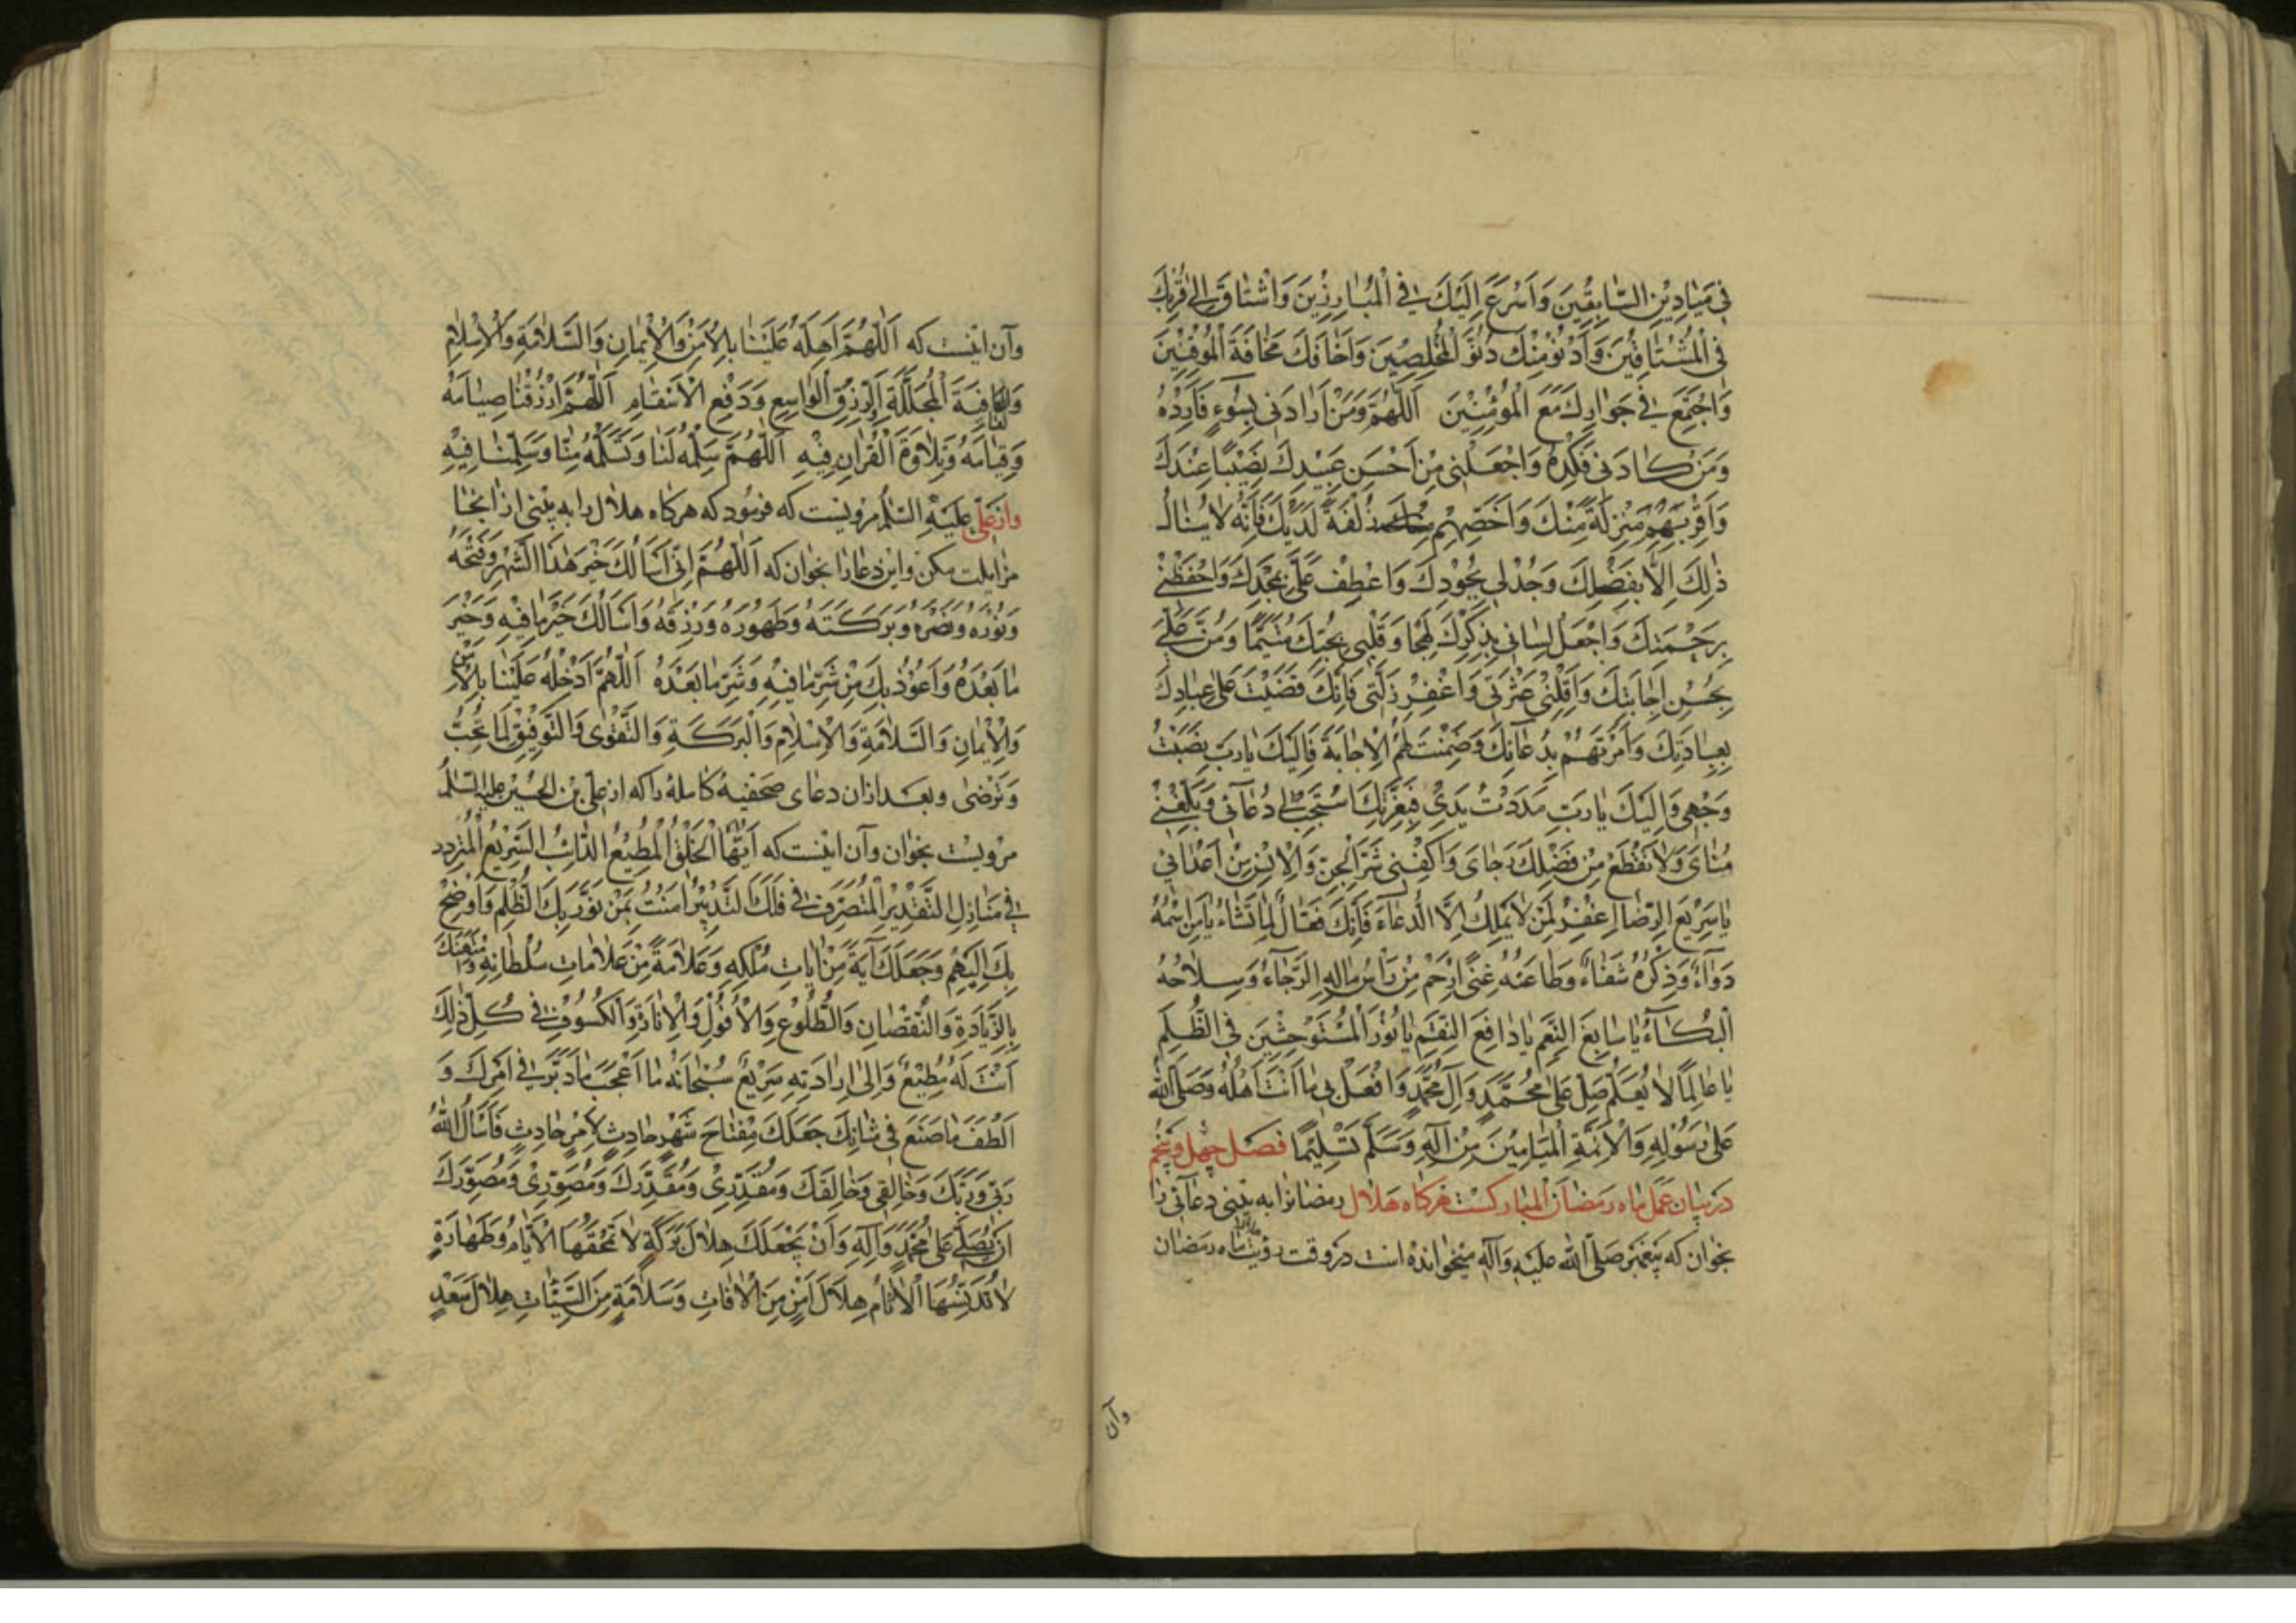 فِی مَیَادِیْنِ السَّابِقِیْنَ وَاَسْرَعَ اِلَیْكَ فِی الْمُبَارِزِیْنَ وَاشْتَاقَ اِلیٰ قُرْبِكَ
فِی الْمُشْتَاقِیْنَ وَاَدْنُوَ مِنْكَ دُنُوَّ الْمُخْلِصِیْنَ وَاَخَافَكَ مَخَافَةَ الْمُوْقِنِیْنَ
وَاَجْتَمِعَ فِی جَوَارِكَ مَعَ الْمُؤْمِنِیْنَ اَللّٰهُمَّ وَمَنْ اَرَادَنِی بِسُوْءٍ فَاَرِدْهُ
وَمَنْ كَادَنِی فَكِدْهُ وَاجْعَلْنِی مِنْ اَحْسَنِ عَبِیْدِكَ نَصِیْبًا عِنْدَكَ
وَاَقْرَبِهِمْ مَنْزِلَةً مِنْكَ وَاَخَصِّهِمْ زُلْفَةً لَدَیْكَ فَاِنَّهُ لَا یُنَالُ
ذٰلِكَ اِلَّا بِفَضْلِكَ وَجُدْ لِی بِجُوْدِكَ وَاعْطِفْ عَلَیَّ بِمَجْدِكَ وَاحْفَظْنِی
بِرَحْمَتِكَ وَاجْعَلْ لِسَانِی بِذِكْرِكَ لَهِجًا وَقَلْبِی بِحُبِّكَ مُتَیَّمًا وَمُنَّ عَلَیَّ
بِحُسْنِ اِجَابَتِكَ وَاَقِلْنِی عَثْرَتِی وَاغْفِرْ زَلَّتِی فَاِنَّكَ قَضَیْتَ عَلیٰ عِبَادِكَ
بِعِبَادَتِكَ وَاَمَرْتَهُمْ بِدُعَائِكَ وَضَمِنْتَ لَهُمُ الْاِجَابَةَ فَاِلَیْكَ یَا رَبِّ نَصَبْتُ
وَجْهِی وَاِلَیْكَ یَا رَبِّ مَدَدْتُ یَدِیْ فَبِعِزَّتِكَ اسْتَجِبْ لِی دُعَآئِی وَبَلِّغْنِی
مُنَایَ وَلَا تَقْطَعْ مِنْ فَضْلِكَ رَجَایَ وَاكْفِنِی شَرَّ الْجِنِّ وَالْاِنْسِ مِنْ اَعْدَائِی
یَا سَرِیْعَ الرِّضَا اِغْفِرْ لِمَنْ لَا یَمْلِكُ اِلَّا الدُّعَاءَ فَاِنَّكَ فَعَّالٌ لِمَا تَشَاءُ یَا مَنِ اسْمُهُ
دَوَآءٌ وَذِكْرُهُ شَفَاءٌ وَطَاعَتُهُ غِنًی اِرْحَمْ مَنْ رَأْسُ مَالِهِ الرَّجَاءُ وَسِلَاحُهُ
الْبُكَآءُ یَا سَابِغَ النِّعَمِ یَا دَافِعَ النِّقَمِ یَا نُوْرَ الْمُسْتَوْحِشِیْنَ فِی الظُّلَمِ
یَا عَالِمًا لَا یُعَلَّمُ صَلِّ عَلیٰ مُحَمَّدٍ وَآلِ مُحَمَّدٍ وَافْعَلْ بِی مَا اَنْتَ اَهْلُهُ وَصَلَّی اللهُ
عَلیٰ رَسُوْلِهِ وَالْاَئِمَّةِ الْمَیَامِیْنَ مِنْ آلِهِ وَسَلَّمَ تَسْلِیْمًا فصل چهل و پنجم
در بیان عمل ماه رمضان المبارکست هرکاه هلال رمضانرا به بینی دعائی را
بخوان که پیغمبر صلّی الله علیه وآله میخوانده است در وقت رؤیت ماه رمضان
وآن
وآن اینست که اَللّٰهُمَّ اَهِلَّهُ عَلَیْنَا بِالْاَمْنِ وَالْاِیْمَانِ وَالسَّلَامَةِ وَالْاِسْلَامِ
وَالْعَافِیَةِ الْمُجَلَّلَةِ وَالرِّزْقِ الْوَاسِعِ وَدَفْعِ الْاَسْقَامِ اَللّٰهُمَّ ارْزُقْنَا صِیَامَهُ
وَقِیَامَهُ وَتِلَاوَةَ الْقُرْاٰنِ فِیْهِ اَللّٰهُمَّ سَلِّمْهُ لَنَا وَتَسَلَّمْهُ مِنَّا وَسَلِّمْنَا فِیْهِ
واز علی علیه السّلم مرویست که فرمود که هرکاه هلال را به بینی از انجا
مزایلت مکن واین دعا را بخوان که اَللّٰهُمَّ اِنِّی اَسْاَلُكَ خَیْرَ هٰذَا الشَّهْرِ وَفَتْحَهُ
وَنُوْرَهُ وَنَصْرَهُ وَبَرَكَتَهُ وَطَهُوْرَهُ وَرِزْقَهُ وَاَسْاَلُكَ خَیْرَ مَا فِیْهِ وَخَیْرَ
مَا بَعْدَهُ وَاَعُوْذُ بِكَ مِنْ شَرِّ مَا فِیْهِ وَشَرِّ مَا بَعْدَهُ اَللّٰهُمَّ اَدْخِلْهُ عَلَیْنَا بِالْاَمْنِ
وَالْاِیْمَانِ وَالسَّلَامَةِ وَالْاِسْلَامِ وَالْبَرَكَةِ وَالتَّقْوٰی وَالتَّوْفِیْقِ لِمَا تُحِبُّ
وَتَرْضٰی وبعد ازان دعای صحفیهٔ کامله را که از علی بن الحسین علیه السلم
مرویست بخوان وآن اینست که اَیُّهَا الْخَلْقُ الْمُطِیْعُ الدَّائِبُ السَّرِیْعُ الْمُتَرَدِّدُ
فِی مَنَازِلِ التَّقْدِیْرِ الْمُتَصَرِّفُ فِی فَلَكِ التَّدْبِیْرِ اٰمَنْتُ بِمَنْ نَوَّرَ بِكَ الظُّلَمَ وَاَوْضَحَ
بِكَ الْبُهَمَ وَجَعَلَكَ آیَةً مِنْ اٰیَاتِ مُلْكِهِ وَعَلَامَةً مِنْ عَلَامَاتِ سُلْطَانِهِ وَامْتَهَنَكَ
بِالزِّیَادَةِ وَالنُّقْصَانِ وَالطُّلُوْعِ وَالْاُفُوْلِ وَالْاِنَارَةِ وَالْكُسُوْفِ فِی كُلِّ ذٰلِكَ
اَنْتَ لَهُ مُطِیْعٌ وَاِلیٰ اِرَادَتِهِ سَرِیْعٌ سُبْحَانَهُ مَا اَعْجَبَ مَا دَبَّرَ فِی اَمْرِكَ وَ
اَلْطَفَ مَا صَنَعَ فِی شَانِكَ جَعَلَكَ مِفْتَاحَ شَهْرٍ حَادِثٍ لِاَمْرٍ حَادِثٍ فَاَسْاَلُ اللهَ
رَبِّی وَرَبَّكَ وَخَالِقِی وَخَالِقَكَ وَمُقَدِّرِیْ وَمُقَدِّرَكَ وَمُصَوِّرِیْ وَمُصَوِّرَكَ
اَنْ یُصَلِّیَ عَلیٰ مُحَمَّدٍ وَآلِهِ وَاَنْ یَجْعَلَكَ هِلَالَ بَرَكَةٍ لَا تَمْحَقُهَا الْاَیَّامُ وَطَهَارَةٍ
لَا تُدَنِّسُهَا الْاٰثَامُ هِلَالَ اَمْنٍ مِنَ الْاٰفَاتِ وَسَلَامَةٍ مِنَ السَّیِّئَاتِ هِلَالَ سَعْدٍ